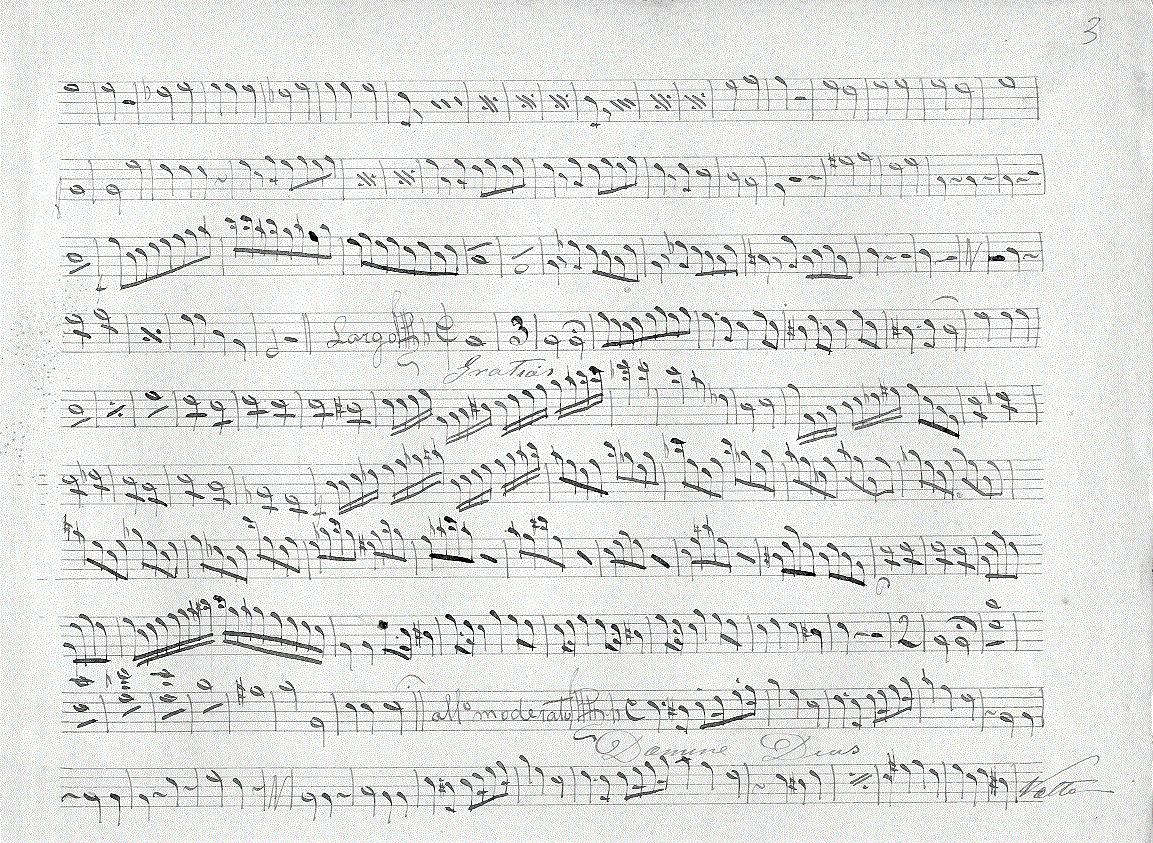 3
Largo 3
Gratias
2
all.º moderato
Domine Deus
Volto